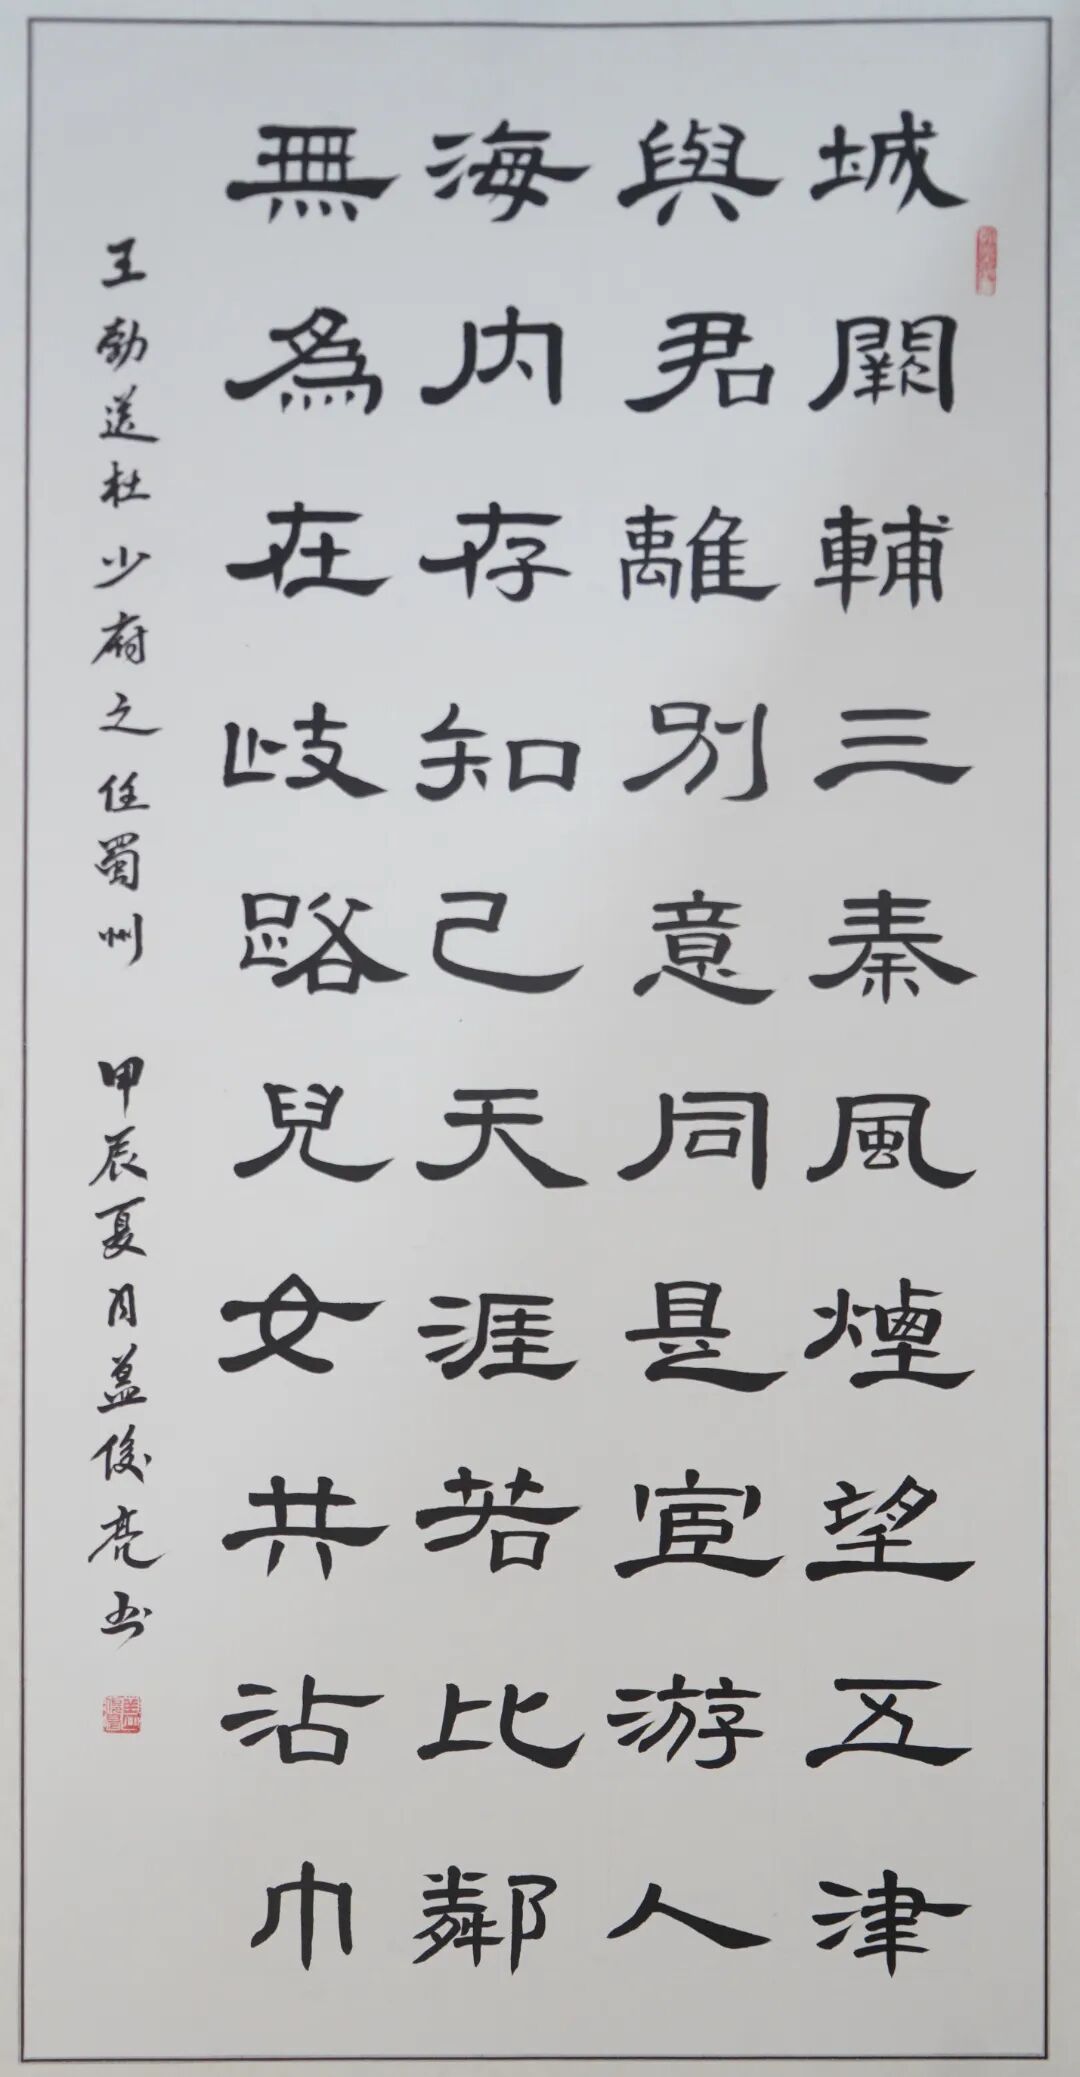 城闕輔三秦風煙望五津
與君離別意同是宦游人
海内存知己天涯若比鄰
無為在歧路兒女共沾巾
王勃送杜少府之任蜀州 甲辰夏月益俊亮书